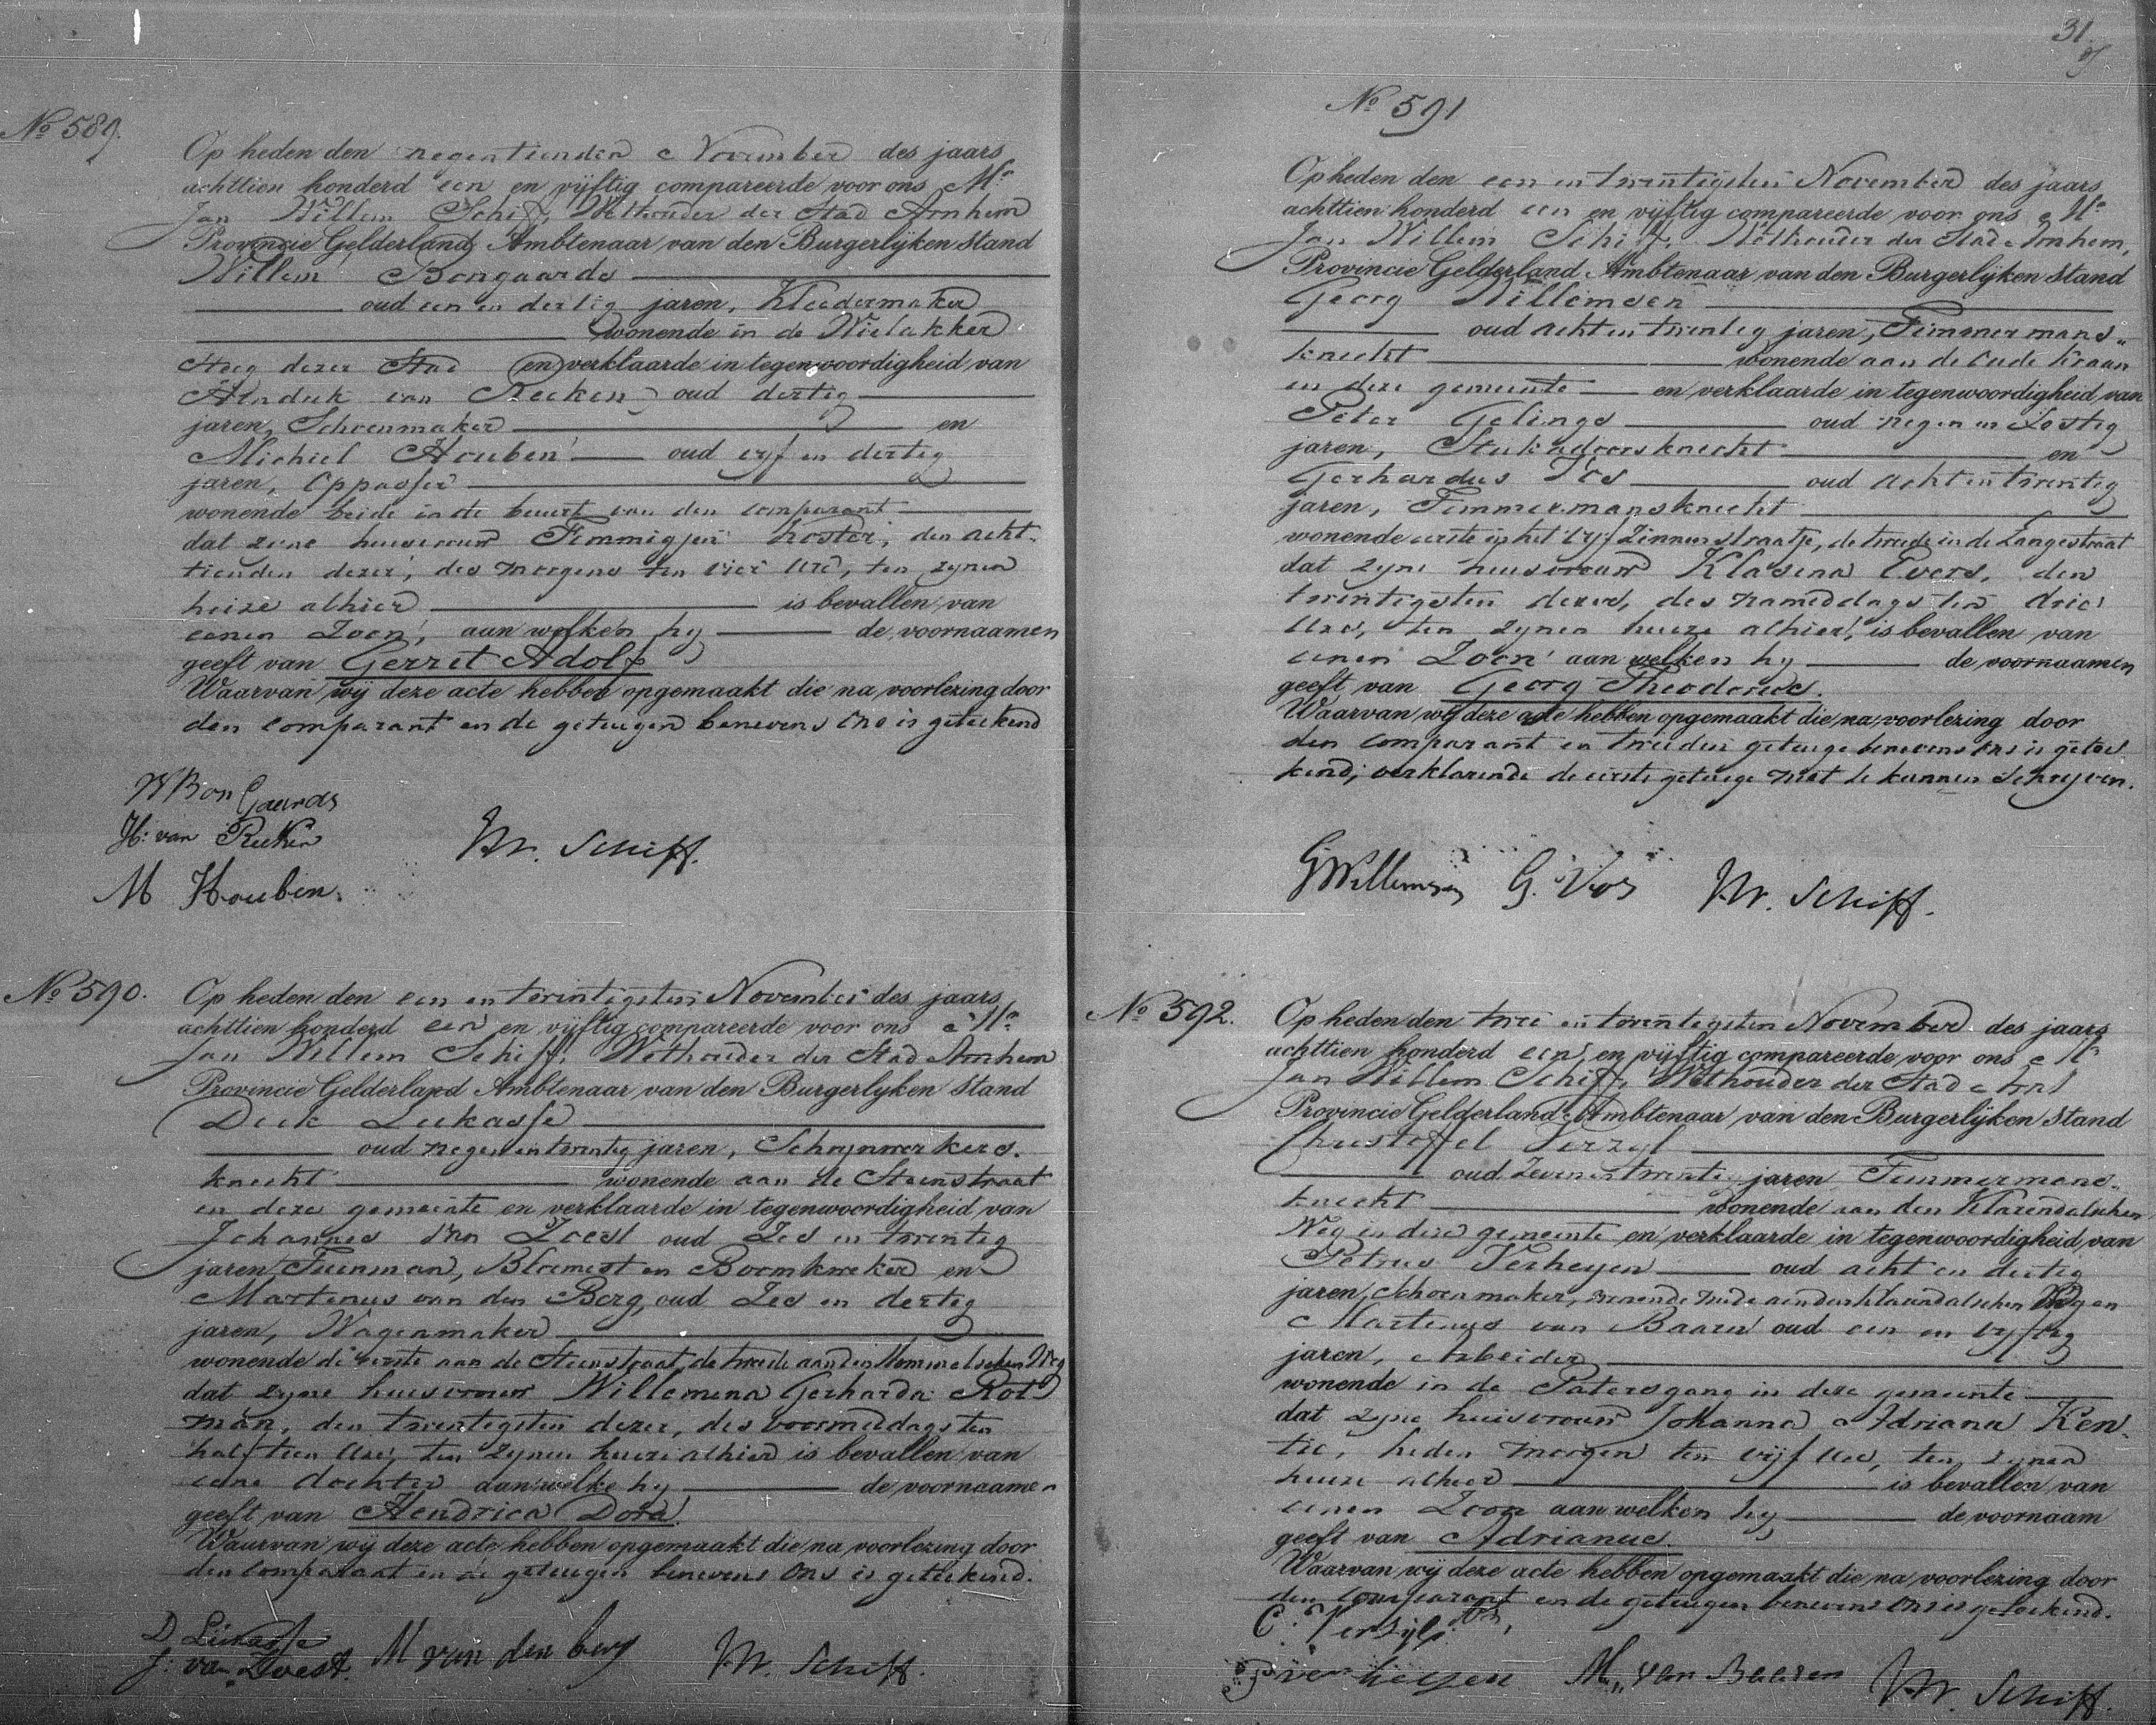 No 589.
Op heden den negentienden November des jaars
achttien honderd een en vijftig compareerde voor ons Mr
Jan Willem Schiff, Wethouder der Stad Arnhem
Provincie Gelderland Ambtenaar van den Burgerlijken Stand
Willem Bongaards
oud een en dertig jaren, Kleedermaker
wonende in de Wielakker
steeg dezer Stad en verklaarde in tegenwoordigheid van
Hendrik van Reeken oud dertig
jaren, Schoenmaker en
Michiel Houben oud vyf en dertig
jaren, Oppasser
wonende beide in de buurt van den comparant
dat zyne huisvrouw Femmigjen Koster, den acht-
tienden dezer, des morgens ten vier ure, ten zynen
huize alhier is bevallen van
eenen Zoon, aan welken hy de voornaamen
geeft van Gerret Adolf
Waarvan wij deze acte hebben opgemaakt die na voorlezing door
den comparant en de getuigen benevens ons is geteekend
W Bon Gaards
H: van Reeken
M Houben.
Mr. Schiff.
No 590.
Op heden den een en twintigsten November des jaars
achttien honderd een en vijftig compareerde voor ons Mr
Jan Willem Schiff, Wethouder der Stad Arnhem
Provincie Gelderland Ambtenaar van den Burgerlijken Stand
Dirk Lukasse
oud negen en twintig jaren, Schrynwerkers-
knecht wonende aan de Steenstraat
in deze gemeente en verklaarde in tegenwoordigheid van
Johannes van Zoest oud Zes en twintig
jaren Tuinman, Bloemist en Boomkweker en
Martinus van den Berg oud Zes en dertig
jaren, Wagenmaker
wonende de eerste aan de Steenstraat, de tweede aan den Hommelschen Weg
dat zyne huisvrouw Willemina Gerharda Rot
man, den twintigsten dezer, des voormiddags ten
half tien ure, ten zynen huize alhier is bevallen van
eene dochter aan welke hy de voornaamen
geeft van Hendrica Dora.
Waarvan wij deze acte hebben opgemaakt die na voorlezing door
den comparant en de getuigen benevens ons is geteekend.
D Lukasse
J: van Zoest. M van den berg
Mr. Schiff.
31.
No 591
Op heden den een en twintigsten November des jaars
achttien honderd een en vijftig compareerde voor ons Mr
Jan Willem Schiff, Wethouder der Stad Arnhem,
Provincie Gelderland Ambtenaar van den Burgerlijken Stand
Georg Willemsen
oud acht en twintig jaren, Timmermans-
knecht wonende aan de Oude Kraan
in deze gemeente en verklaarde in tegenwoordigheid van
Peter Gelings oud negen en Zestig
jaren, Stukadoorsknecht en
Gerhardus Vos oud acht en twintig
jaren, Timmermansknecht
wonende eerste op het vyf Zinnen straatje, de tweede in de Langestraat
dat zyne huisvrouw Klasina Evers, den
twintigsten dezer, des namiddags ten drie
ure, ten zynen huize alhier, is bevallen van
eenen Zoon aan welken hy de voornaamen
geeft van Georg Theodorus.
Waarvan wij deze acte hebben opgemaakt die na voorlezing door
den comparant en tweeden getuige benevens ons is getee
kend; verklarende de eerste getuige niet te kunnen schryven.
GWillemsen G. Vos Mr. Schiff.
No 592.
Op heden den twee en twintigsten November des jaars
achttien honderd een en vijftig compareerde voor ons Mr
Jan Willem Schiff, Wethouder der Stad
Provincie Gelderland Ambtenaar van den Burgerlijken Stand
Christoffel Verzyl
oud Zeven en twintig jaren Timmermans-
knecht wonende aan den Klarendalschen
Weg in deze gemeente en verklaarde in tegenwoordigheid van
Petrus Verheyen oud acht en dertig
jaren, Schoenmaker, wonende mede aan den Klarendalschen Weg en
Martinus van Baaren oud een en vyftig
jaren, Arbeider
wonende in de Patersgang in deze gemeente
dat zyne huisvrouw Johanna Adriana Ken-
tie, heden morgen ten vijf ure, ten zynen
huize alhier is bevallen van
eenen Zoon aan welken hy de voornaam
geeft van Adrianus.
Waarvan wij deze acte hebben opgemaakt die na voorlezing door
den comparant en de getuigen benevens ons is geteekend.
C. Verzijl
P verheijen M. van Baaren Mr. Schiff.